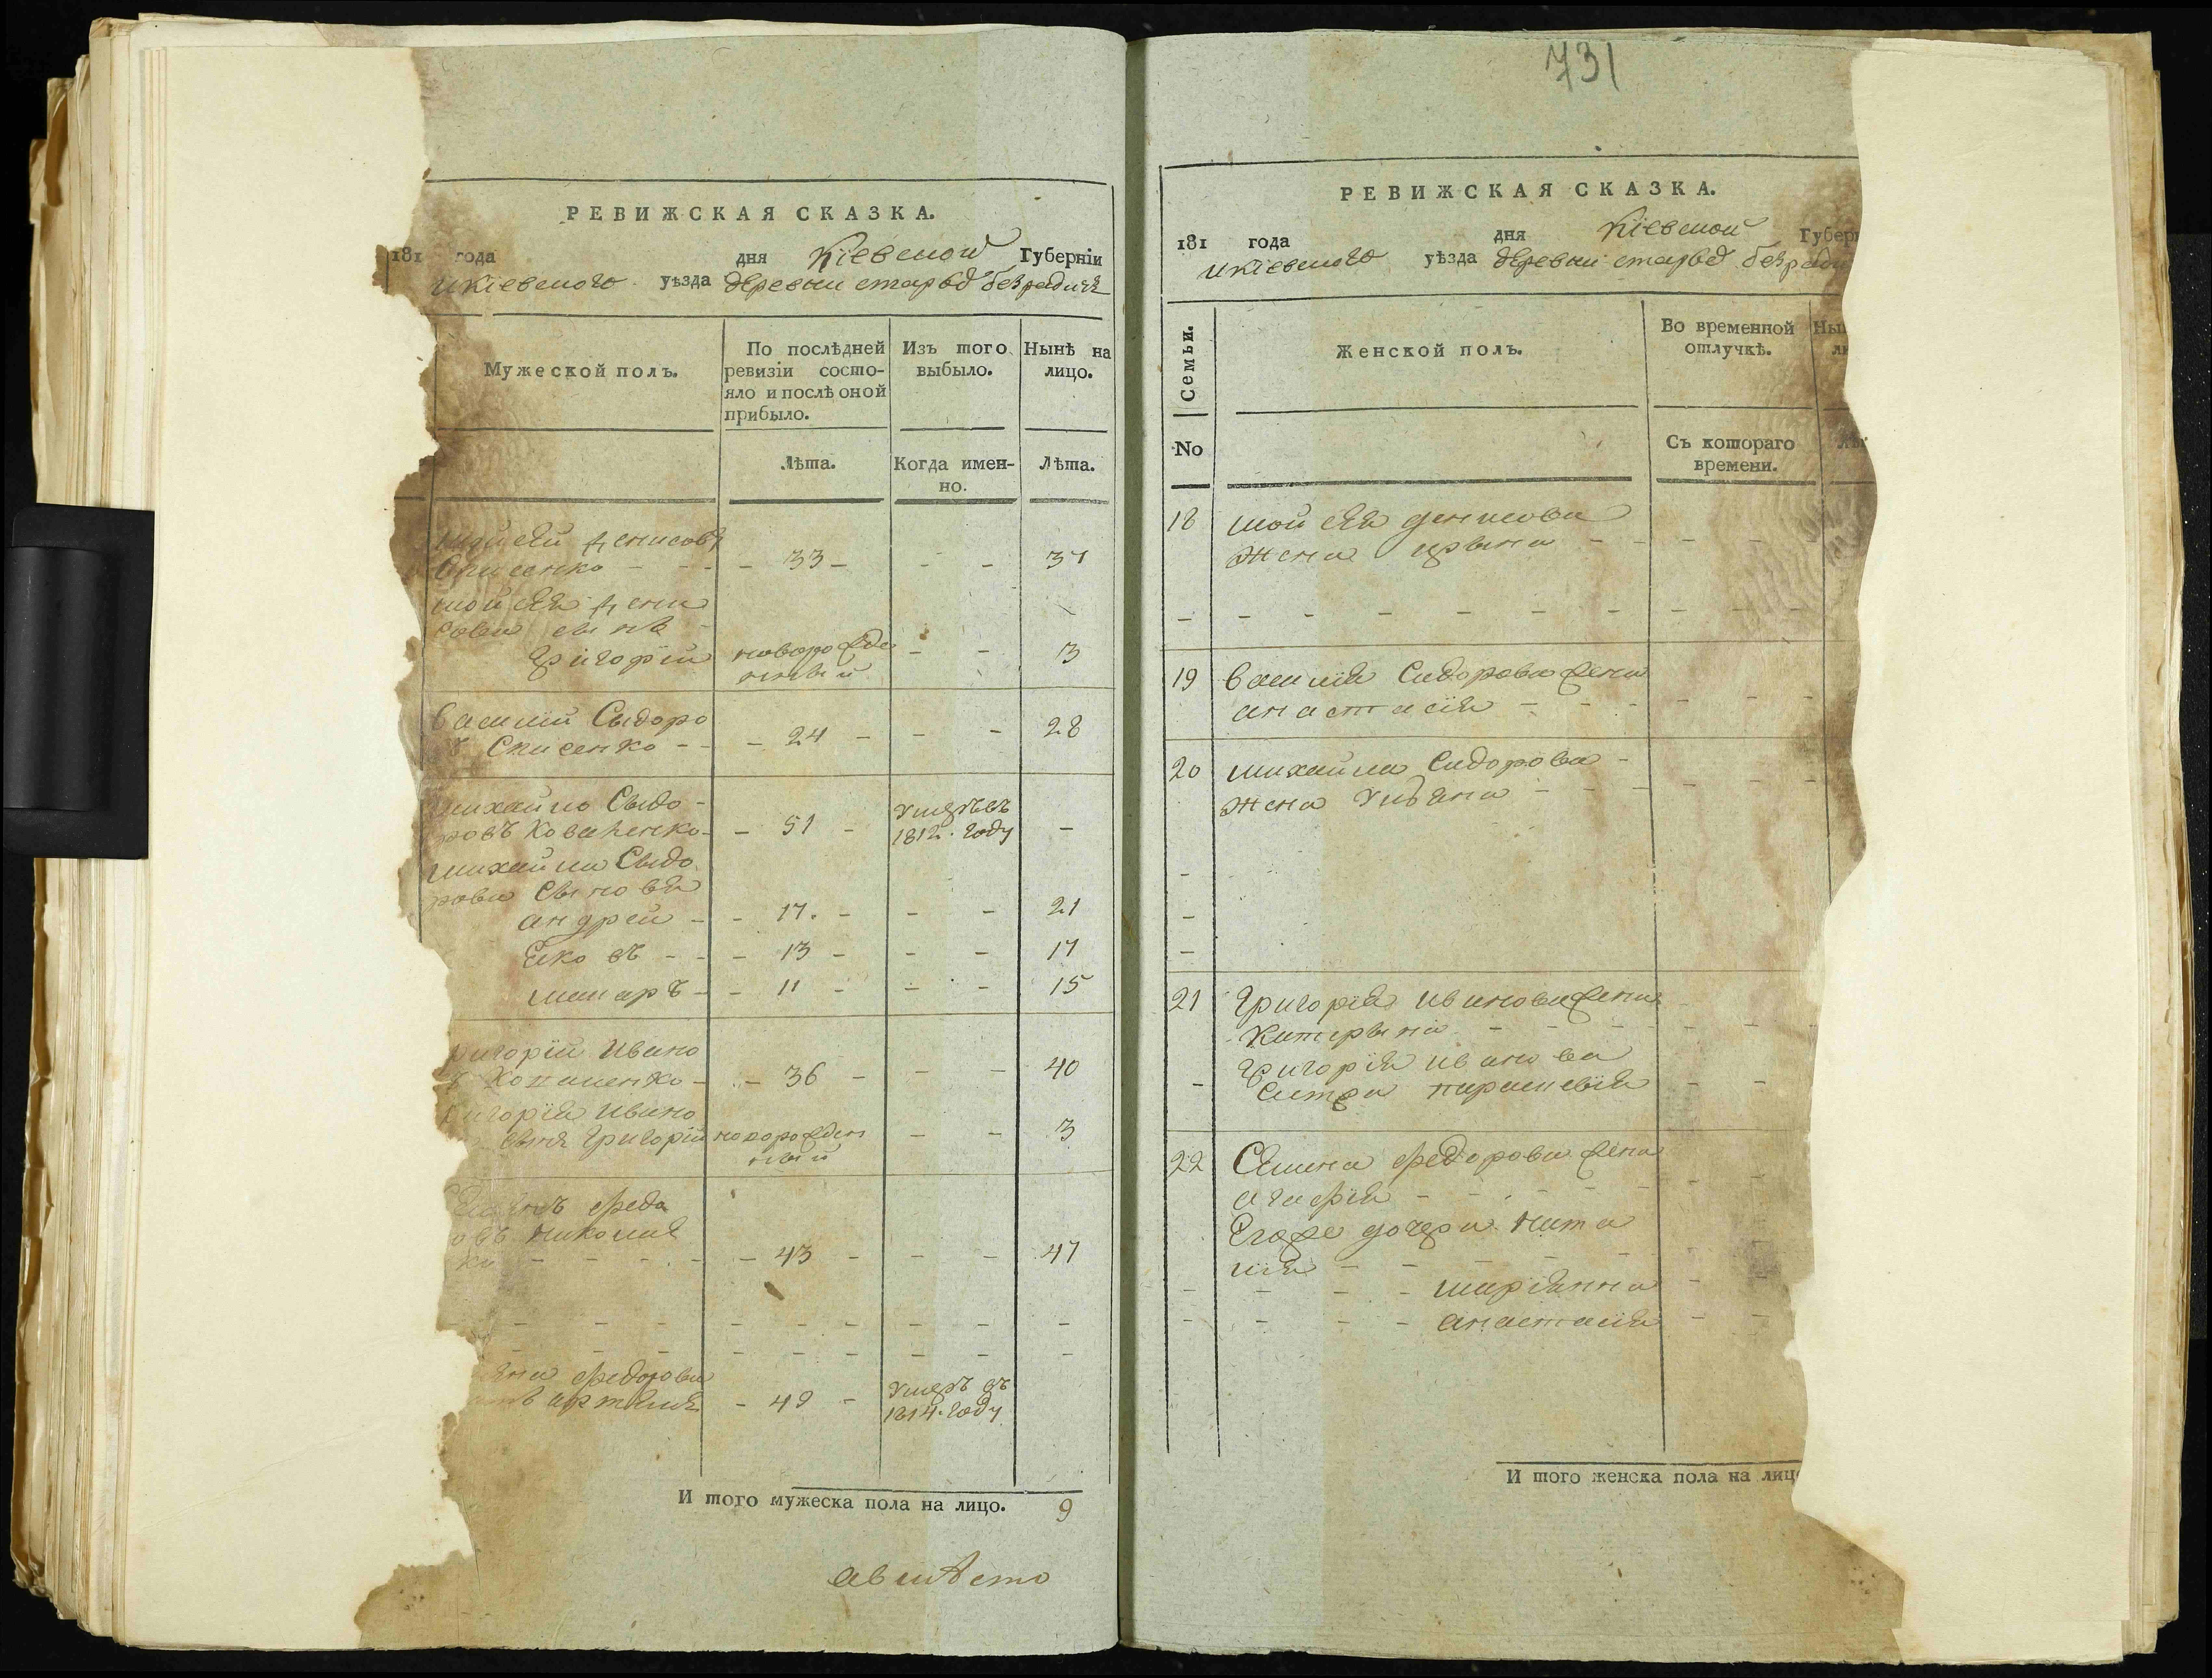 РЕВИЖСКАЯ СКАЗКА.
181 года дня Кіевской Губерніи
и кіевского уѣзда деревни старѣ безрадичъ
Мужеской полъ.
По послѣдней ревизіи состо-
яло и послѣ оной
прибыло.
Изъ того
выбыло.
Нынѣ на
лицо.
Лѣта.
Когда имен-
но.
Лѣта.
Денисовъ
- - 33 - - - 37
моисея Дени
сова сынъ
Григорій новорожде - - 3
нный
Василій Сидоро
Списенко - - 24 - - - 28
михайло Сидо -
ровъ Коваленко - 51 - умеръ въ 1812. году -
михайла Сидо
рова Сыновья
андрей - - 17. - - - 21
Яковъ - - 13 - - - 17
макаръ - - 11 - - - 15
ригорій Ивано
- - 36 - - - 40
ригорія Ивано
сынъ Григорій новорожден - - 3
ный
федо
овъ
- - - - 43 - - - 47
- - - - - - - - -
- - - - - - - - -
федорова
- 49 - умеръ въ
1814. году
И того мужеска пола на лицо. 9
731
РЕВИЖСКАЯ СКАЗКА.
181 года дня Кіевской Губер
и кіевского уѣзда деревни старѣ безради
Семьи.
Женской полъ.
Во временной
отлучкѣ.
Ны
ли
No
Съ котораго
времени.
Лѣ
18 моисея денисова
жена ирына - - - -
- - - - - - - - - -
19 василія Сидорова жена
анастасія - - - - -
20 михайла Сидорова -
жена уляна - - - - -
-
-
-
21 Григорія иванова жена
Катерына - - - - -
Григорія иванова
- сестра параскевія - -
22 Семена федорова жена
агафія - - - - -
Егоже дочери ната
лія - - - -
- - - - маріянна - -
- - - - анастасія - -
И того женска пола на лиц